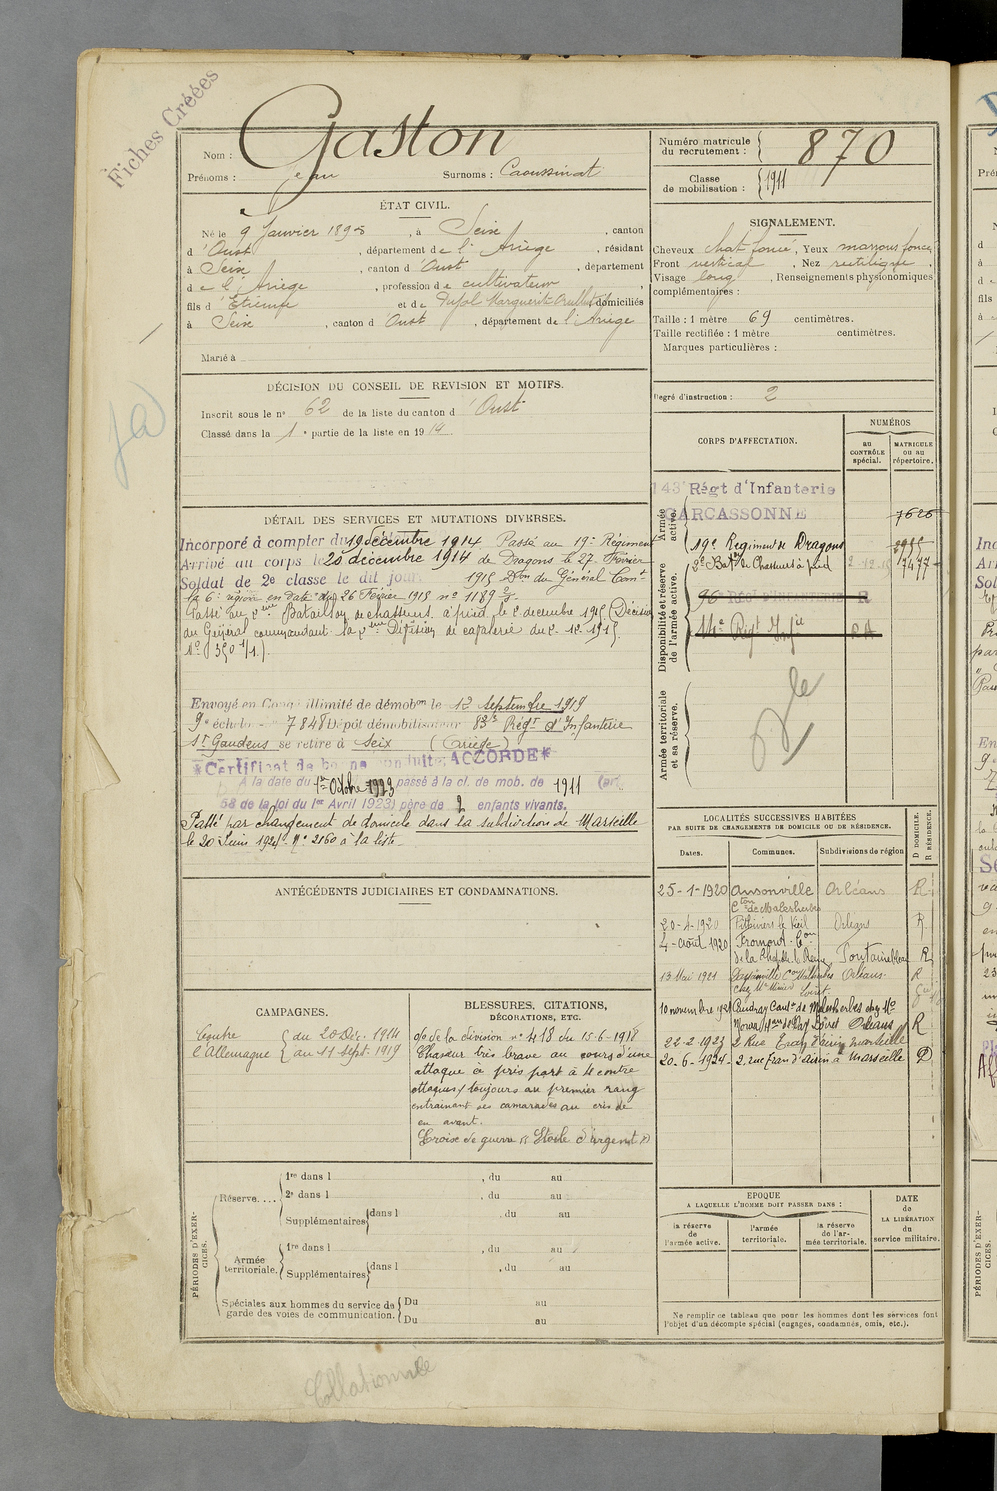 Fiches Créées
Nom : Gaston
Prénoms : Jean Surnoms : Caoussinat
Numéro matricule du recrutement : 870
Classe de mobilisation : 1911
ÉTAT CIVIL.
Né le 9 Janvier 189 , à Seix , canton
d'Oust , département de l'Ariège , résidant
à Seix , canton d'Oust , département
de l'Ariège , profession de cultivateur ,
fils d'Etienne et de Pujol Marguerite domiciliés
à Seix , canton d'Oust , département de l'Ariège
Marié à
SIGNALEMENT.
Cheveux chat. foncé, Yeux marrons foncé,
Front vertical , Nez rectiligne ,
Visage long , Renseignements physionomiques
complémentaires :
Taille : 1 mètre 69 centimètres.
Taille rectifiée : 1 mètre centimètres.
Marques particulières :
Degré d'instruction : 2
DÉCISION DU CONSEIL DE REVISION ET MOTIFS.
Inscrit sous le n° 62 de la liste du canton d'Oust
Classé dans la 1e partie de la liste en 1914.
DÉTAIL DES SERVICES ET MUTATIONS DIVERSES.
Incorporé à compter du 19 décembre 1914 Passé au 19e Régiment
Arrivé au corps le 20 décembre 1914 de Dragons le 27 Février
Soldat de 2e classe le dit jour 1915 Don du Général Comt
la 6e région en date du 26 Février 1915 n° 1189
Passé au 2eme Bataillon de chasseurs à pied le 2 decembre 1915 (Décision
du Général commandant la 2eme Division de cavalerie du 2-12-1915
N° 350 1/1.)
Envoyé en Congé illimité de démobon le 12 septembre 1919
9e échelon 7848 Dépôt démobilisateur 83e Régt d'Infanterie
St Gaudens se retire à Seix (Ariège)
*Certificat de bonne conduite, ACCORDE*
A la date du 1er Octobre 1923 passé à la cl. de mob. de 1911 (art.
58 de la loi du 1er Avril 1923) père de 2 enfants vivants.
Passé par changement de domicile dans la subdivision de Marseille
le 20 Juin 1924. N° 2160 à la liste.
CORPS D'AFFECTATION.
NUMÉROS
au CONTRÔLE spécial.
MATRICULE OU au répertoire.
Armée active.
143e Régt d'Infanterie
CARCASSONNE 7626
19e Régiment de Dragons
2e Baton de Chasseurs à pied 7477
Disponibilité et réserve de l'armée active.
96e REGt D'INFANTERIE R
14e Régt Infie
Armée territoriale et sa réserve.
LOCALITÉS SUCCESSIVES HABITÉES
PAR SUITE DE CHANGEMENTS DE DOMICILE OU DE RÉSIDENCE.
Dates. Communes. Subdivisions de région D DOMICILE. R RÉSIDENCE.
25-1-1920 Ansonville Orléans R
Cton de Malesherbes
20-4-1920 Pithiviers le Vieil Orléans R
4-août 1920 Fromont Con
de la Chapelle la Reine Fontainebleau R
13 Mai 1921 Orléans R
Loiret.
10 novembre 1921 Loiret Orléans R
22-2-1923 2 Rue Marseille
20-6-1924 2, rue d'Aix à Marseille D
ANTÉCÉDENTS JUDICIAIRES ET CONDAMNATIONS.
CAMPAGNES.
Contre l'Allemagne
du 20 Déc. 1914
au 11 Sept. 1919
BLESSURES, CITATIONS, DÉCORATIONS, ETC.
de la division n° 418 du 15-6-1918
Chasseur très brave au cours d'une
attaque a pris part à 4 contre
attaques toujours au premier rang
entrainant ses camarades au cris de
en avant.
Croix de guerre Etoile d'argent
PÉRIODES D'EXERCICES.
Réserve....
1re dans l , du au
2e dans l , du au
Supplémentaires dans l , du au
Armée territoriale.
1re dans l , du au
Supplémentaires dans l , du au
Spéciales aux hommes du service de garde des voies de communication.
Du au
Du au
EPOQUE
A LAQUELLE L'HOMME DOIT PASSER DANS :
la réserve de l'armée active.
l'armée territoriale.
la réserve de l'armée territoriale.
DATE de LA LIBÉRATION du service militaire.
Ne remplir ce tableau que pour les hommes dont les services font
l'objet d'un décompte spécial (engagés, condamnés, omis, etc.).
Collationnée